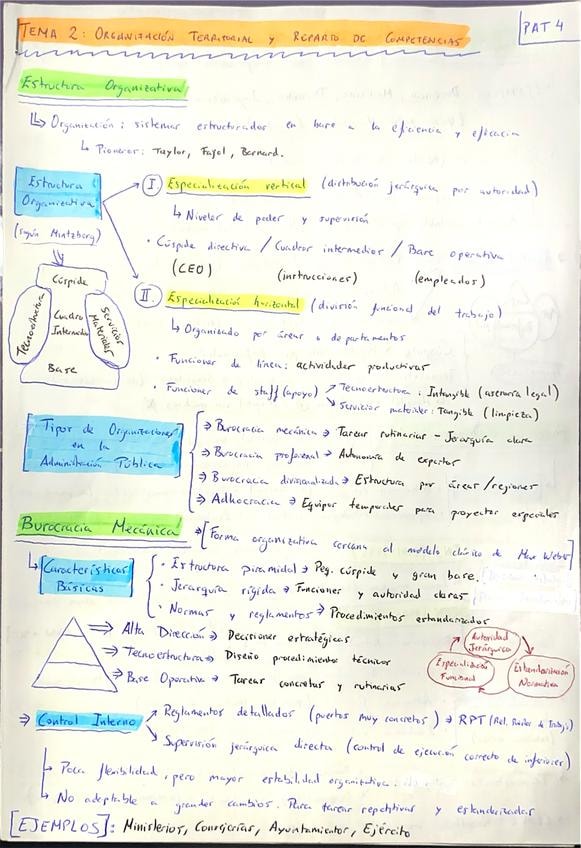 TEMA 2: ORGANIZACIÓN TERRITORIAL Y REPARTO DE COMPETENCIAS
PAT 4
Estructura Organizativa
↳ Organización: sistemas estructurados en base a la eficiencia y eficacia
↳ Pioneros: Taylor, Fayol, Barnard.
Estructura Organizativa
(según Mintzberg)
Cúspide
Tecnoestructura
Cuadro Intermedio
Servicios Materiales
Base
I. Especialización vertical (distribución jerárquica por autoridad)
↳ Niveles de poder y supervisión
· Cúspide directiva / Cuadros intermedios / Base operativa
(CEO) (instrucciones) (empleados)
II. Especialización horizontal (división funcional del trabajo)
↳ Organizado por áreas o departamentos
· Funciones de línea: actividades productivas
· Funciones de staff (apoyo) ↗ Tecnoestructura: Intangible (asesoría legal)
↘ Servicios materiales: Tangible (limpieza)
Tipos de Organizaciones en la Administración Pública
⇒ Burocracia mecánica ⇒ Tareas rutinarias - Jerarquía clara
⇒ Burocracia profesional ⇒ Autonomía de expertos
⇒ Burocracia divisionalizada ⇒ Estructura por áreas/regiones
⇒ Adhocracia ⇒ Equipos temporales para proyectos especiales
Burocracia Mecánica ⇒ [Forma organizativa cercana al modelo clásico de Max Weber]
↳ Características Básicas
· Estructura piramidal ⇒ Peq. cúspide y gran base.
· Jerarquía rígida ⇒ Funciones y autoridad claras
· Normas y reglamentos ⇒ Procedimientos estandarizados
⇒ Alta Dirección ⇒ Decisiones estratégicas
⇒ Tecnoestructura ⇒ Diseño procedimientos técnicos
⇒ Base Operativa ⇒ Tareas concretas y rutinarias
Autoridad Jerárquica
Especialización Funcional
Estandarización Normativa
⇒ Control Interno ↗ Reglamentos detallados (puestos muy concretos) ⇒ RPT (Rel. Puestos de Trabajo)
↘ Supervisión jerárquica directa (control de ejecución correcto de inferiores)
Poca flexibilidad, pero mayor estabilidad organizativa.
No adaptable a grandes cambios. Para tareas repetitivas y estandarizadas
[EJEMPLOS]: Ministerios, Consejerías, Ayuntamientos, Ejército